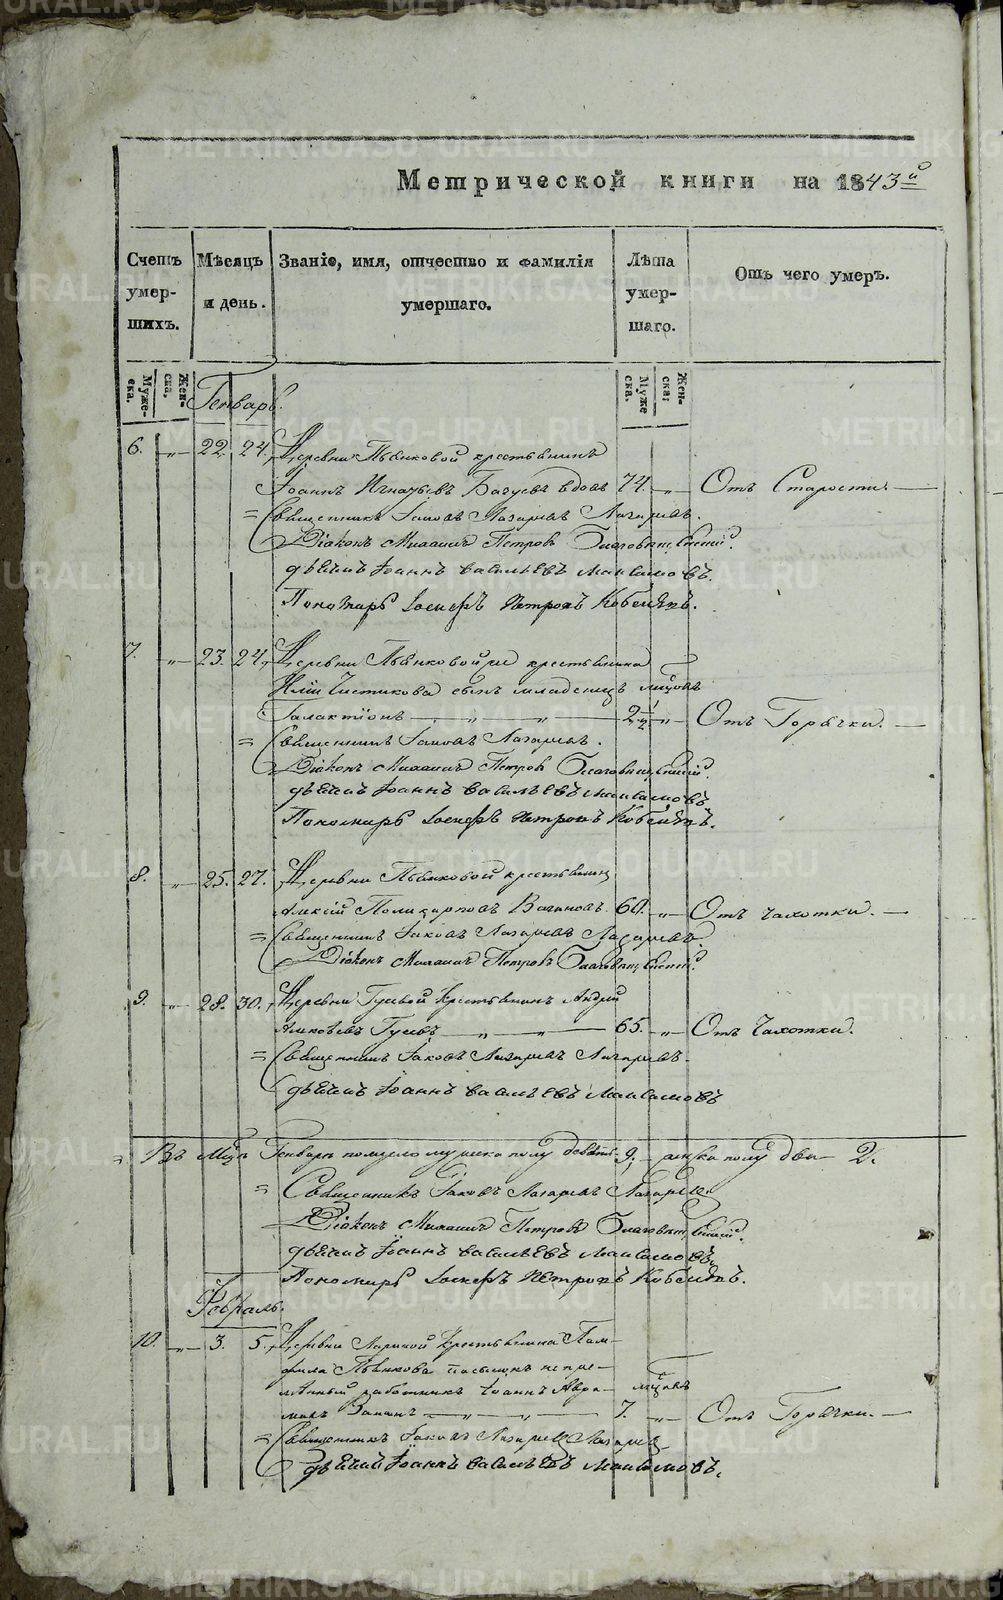 Метрической книги на 1843й
Счетъ умер-шихъ.
Мѣсяцъ и день.
Званіе, имя, отчество и фамилія умершаго.
Лѣта умер-шаго.
Отъ чего умеръ.
Муже-ска.
Жен-ска.
Муже ска.
Жен-ска.
Генварь.
6. „ 22. 24. Деревни Пьянковой крестьянинъ
Іоаннъ Игнатьевъ вдовъ 74. „ Отъ Старости.
= Священникъ Іаковъ Лазаревъ Лазаревъ.
Діаконъ Михаилъ Петровъ
дьячекъ Іоаннъ Васильевъ Максимовъ.
Пономарь Іосифъ Петровъ
7. „ 23. 24. Деревни Пьянковой же крестьянина
Чистикова сынъ младенецъ мѣсяцовъ
Галактіонъ „ „ 2 1/2 „ Отъ Горячки.
= Священникъ Іаковъ Лазаревъ.
Діаконъ Михаилъ Петровъ
дьячекъ Іоаннъ Васильевъ Максимовъ
Пономарь Іосифъ Петровъ
8. „ 25. 27. Деревни Пьянковой крестьянинъ
Алексій Поликарповъ 60. „ Отъ чахотки.
= Священникъ Іаковъ Лазаревъ Лазаревъ.
Діаконъ Михаилъ Петровъ
9. „ 28. 30. Деревни Гуевой крестьянинъ Андрей
Гуевъ „ „ 65. „ Отъ Чахотки.
= Священникъ Іаковъ Лазаревъ Лазаревъ.
дьячекъ Іоаннъ Васильевъ Максимовъ
Въ Мцѣ Генварѣ померло мужеска полу девять 9, женска полу два 2.
= Священникъ Іаковъ Лазаревъ Лазаревъ
Діаконъ Михаилъ Петровъ
дьячекъ Іоаннъ Васильевъ Максимовъ.
Пономарь Іосифъ Петровъ
Февраль.
10. „ 3. 5. Деревни Лариной крестьянина Пам-
фила Пьянкова
работникъ Іоаннъ
„ „ 7. „ Отъ Горячки.
= Священникъ Іаковъ Лазаревъ Лазаревъ
дьячекъ Іоаннъ Васильевъ Максимовъ.